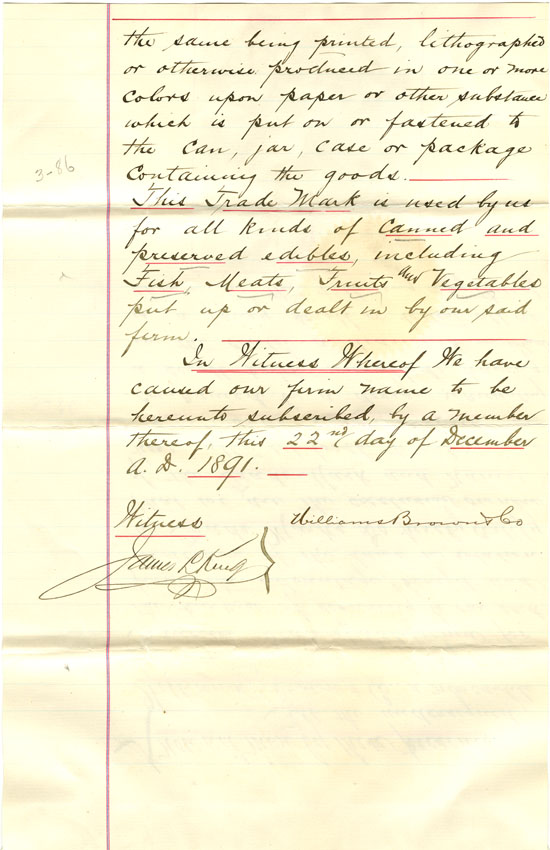 the same being printed, lithographed
or otherwise produced in one or more
colors upon paper or other substance
which is put on or fastened to
the can, jar, case or package
containing the goods.
3-86
This Trade Mark is used by us
for all kinds of canned and
preserved edibles, including
Fish, Meats, Fruits and Vegetables
put up or dealt in by our said
firm.
In Witness Whereof We have
caused our firm name to be
hereunto subscribed, by a member
thereof, this 22nd day of December
A.D. 1891.
Witness
Williams Brown & Co
James L King